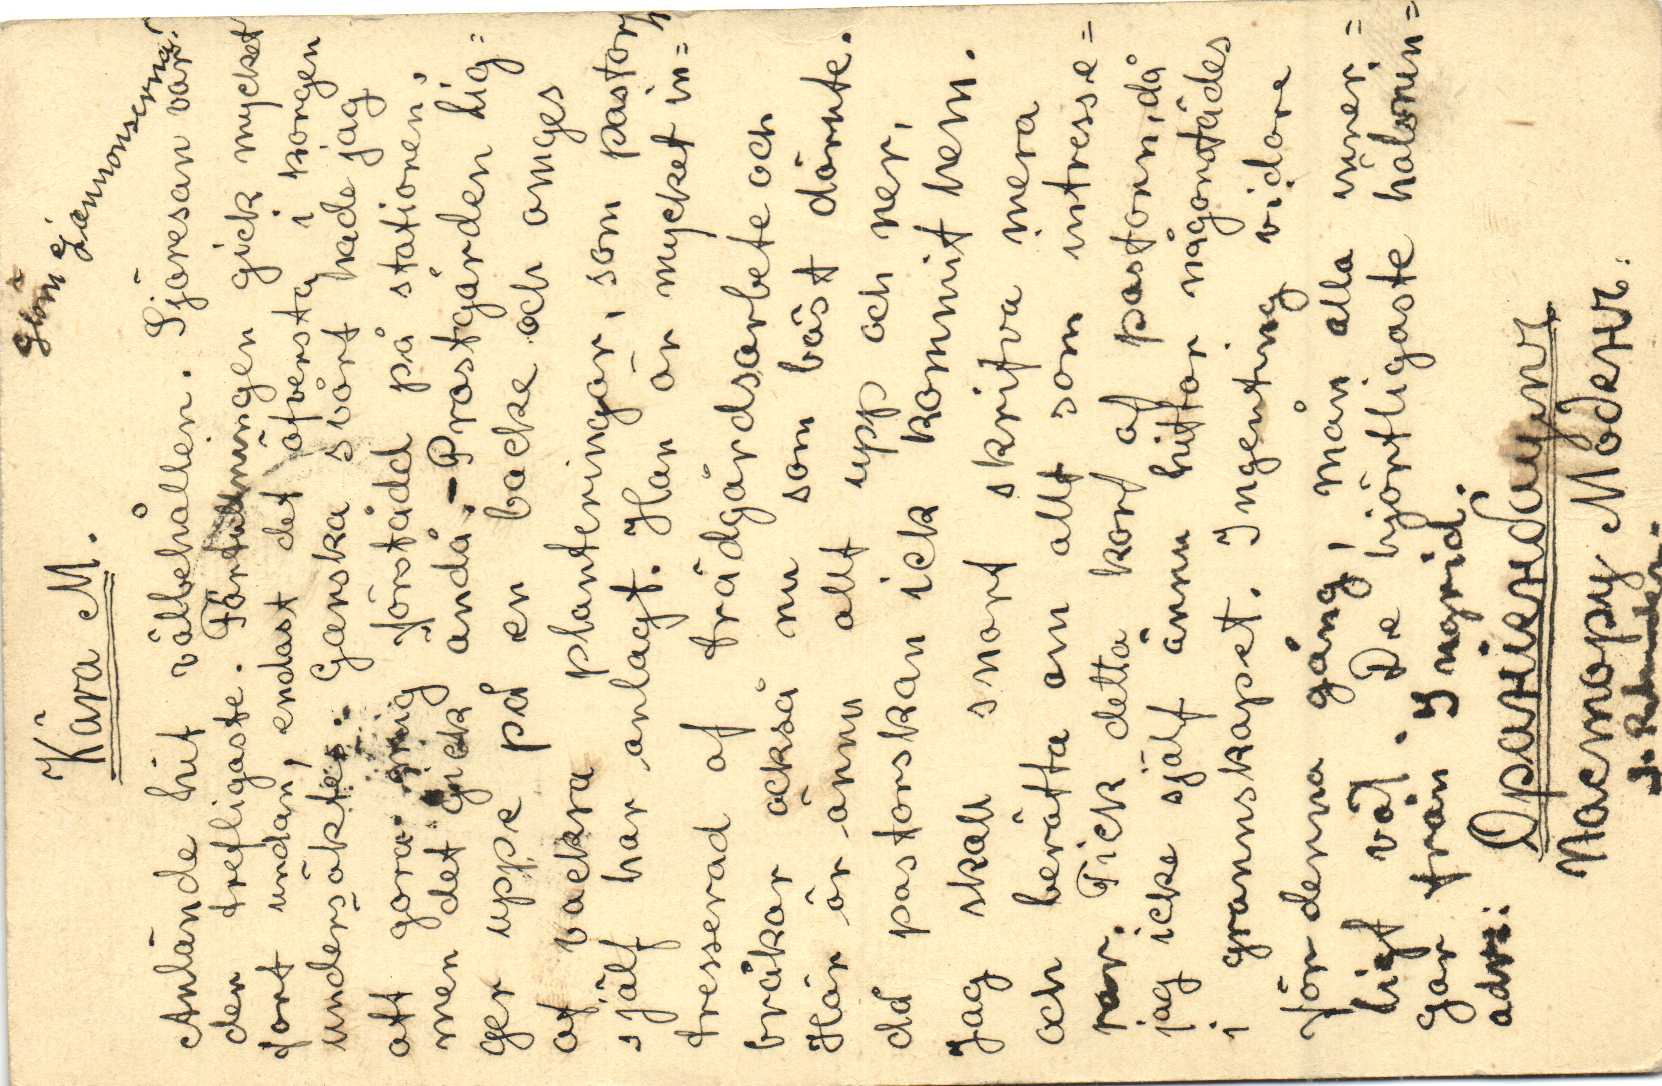 Glöm ej annonserna!
Kära M.
Anlände hit välbehållen. Sjöresan var
den trefligaste. Förtullningen gick mycket
fort undan, endast det öfversta i korgen
undersöktes. Ganska svårt hade jag
att göra mig förstådd på stationen,
men det gick ändå. – Prostgården lig=
ger uppe på en backe och omges
af vackra planteringar, som pastorn
själf har anlagt. Han är mycket in=
tresserad af trädgårdsarbete och
bråkar också nu som bäst därute.
Här är ännu allt upp och ner,
då pastorskan ick kommit hem.
Jag skall snart skrifva mera
och berätta om allt som intresse=
rar. Fick detta kort af pastorn, då
jag icke själf ännu hittar någonstädes
i grannskapet. Ingenting vidare
för denna gång, mån alla inner=
ligt väl. De hjärtligaste hälsnin=
gar från Ingrid.
adr:
Пастору Модену.